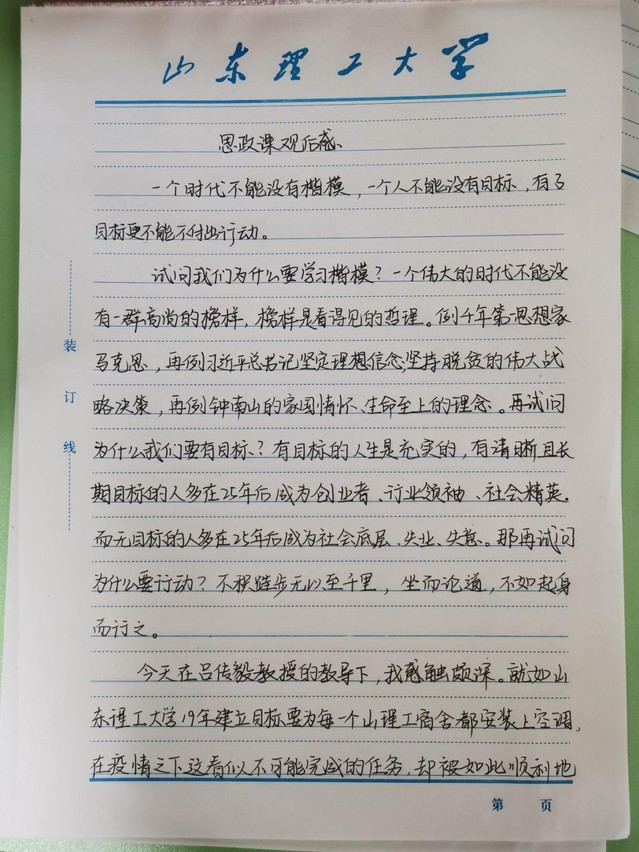 山东理工大学
思政课观后感
一个时代不能没有楷模，一个人不能没有目标，有了
目标更不能不付出行动。
试问我们为什么要学习楷模？一个伟大的时代不能没
有一群高尚的榜样，榜样是看得见的哲理。例千年第一思想家
马克思，再例习近平总书记坚定理想信念，坚持脱贫的伟大战
略决策，再例钟南山的家国情怀、生命至上的理念。再试问
为什么我们要有目标？有目标的人生是充实的，有清晰且长
期目标的人多在25年后成为创业者、行业领袖、社会精英，
而无目标的人多在25年后成为社会底层、失业、失意。那再试问
为什么要行动？不积跬步无以至千里，坐而论道，不如起身
而行之。
今天在吕传毅教授的教导下，我感触颇深。就如山
东理工大学19年建立目标要为每一个山理工宿舍都安装上空调，
在疫情之下这看似不可能完成的任务，却被如此顺利地
装
订
线
第 页